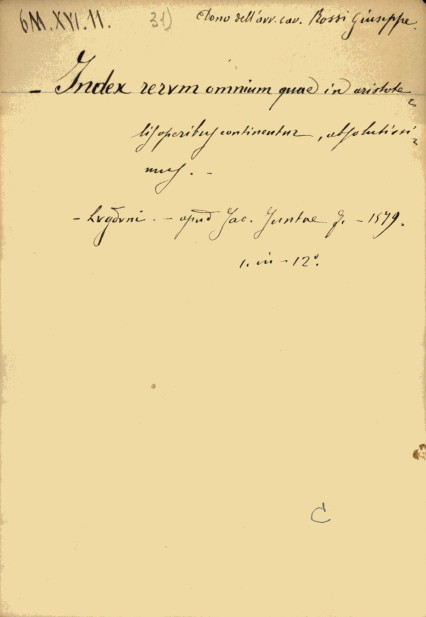 6M.XVI.11. 31) Dono dell'avv. cav. Rossi Giuseppe.
- Index rerum omnium quae in aristote-
lis operibus continentur, absolutissi-
mus. -
- Lugduni. - apud Jac. Juntae f. - 1579.
1. in - 12°.
C